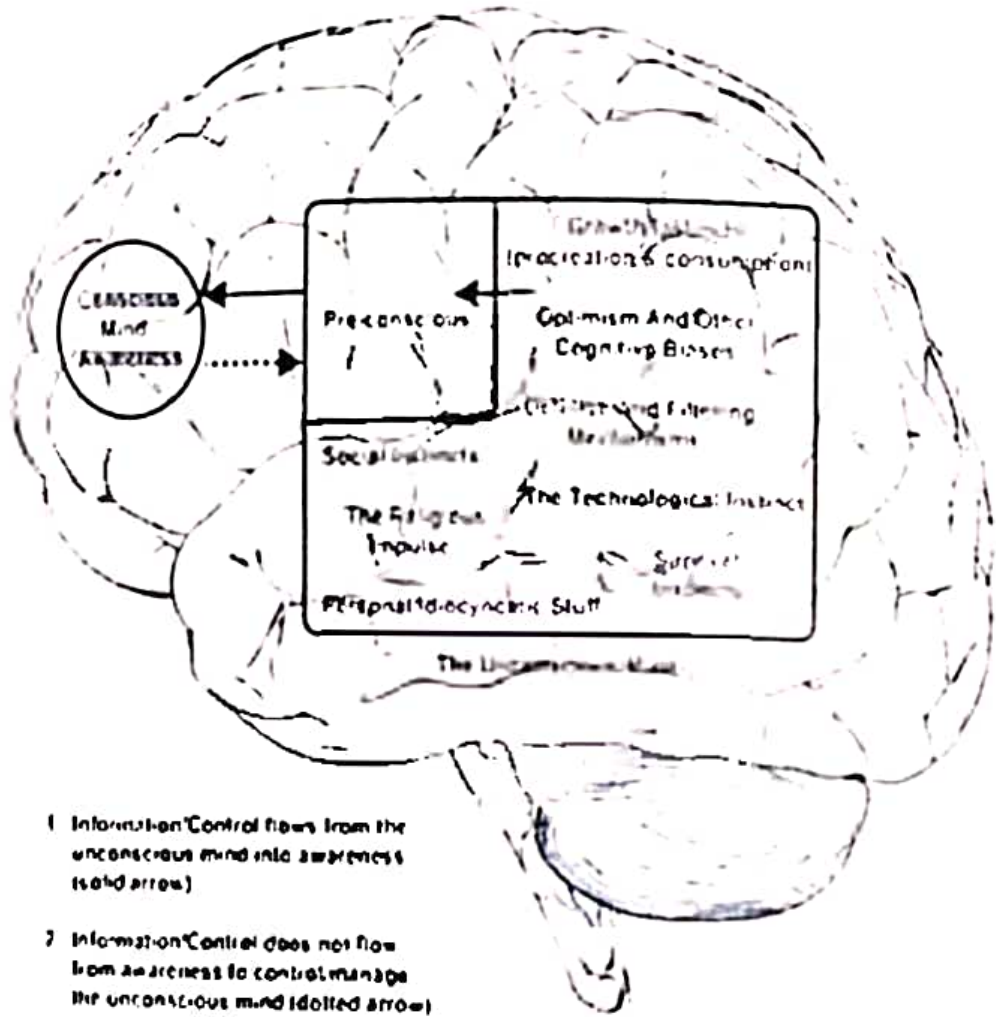 Conscious
Mind
Awareness
Preconscious
Growth
(procreation & consumption)
Optimism And Other
Cognitive Biases
And Filtering
Mechanisms
Social Instincts
The Technological Instinct
The Religious
Impulse
Survival
Personal Idiocyncratic Stuff
The Unconscious Mind
1 Information/Control flows from the
unconscious mind into awareness
(solid arrow)
2 Information/Control does not flow
from awareness to control/manage
the unconscious mind (dotted arrow)